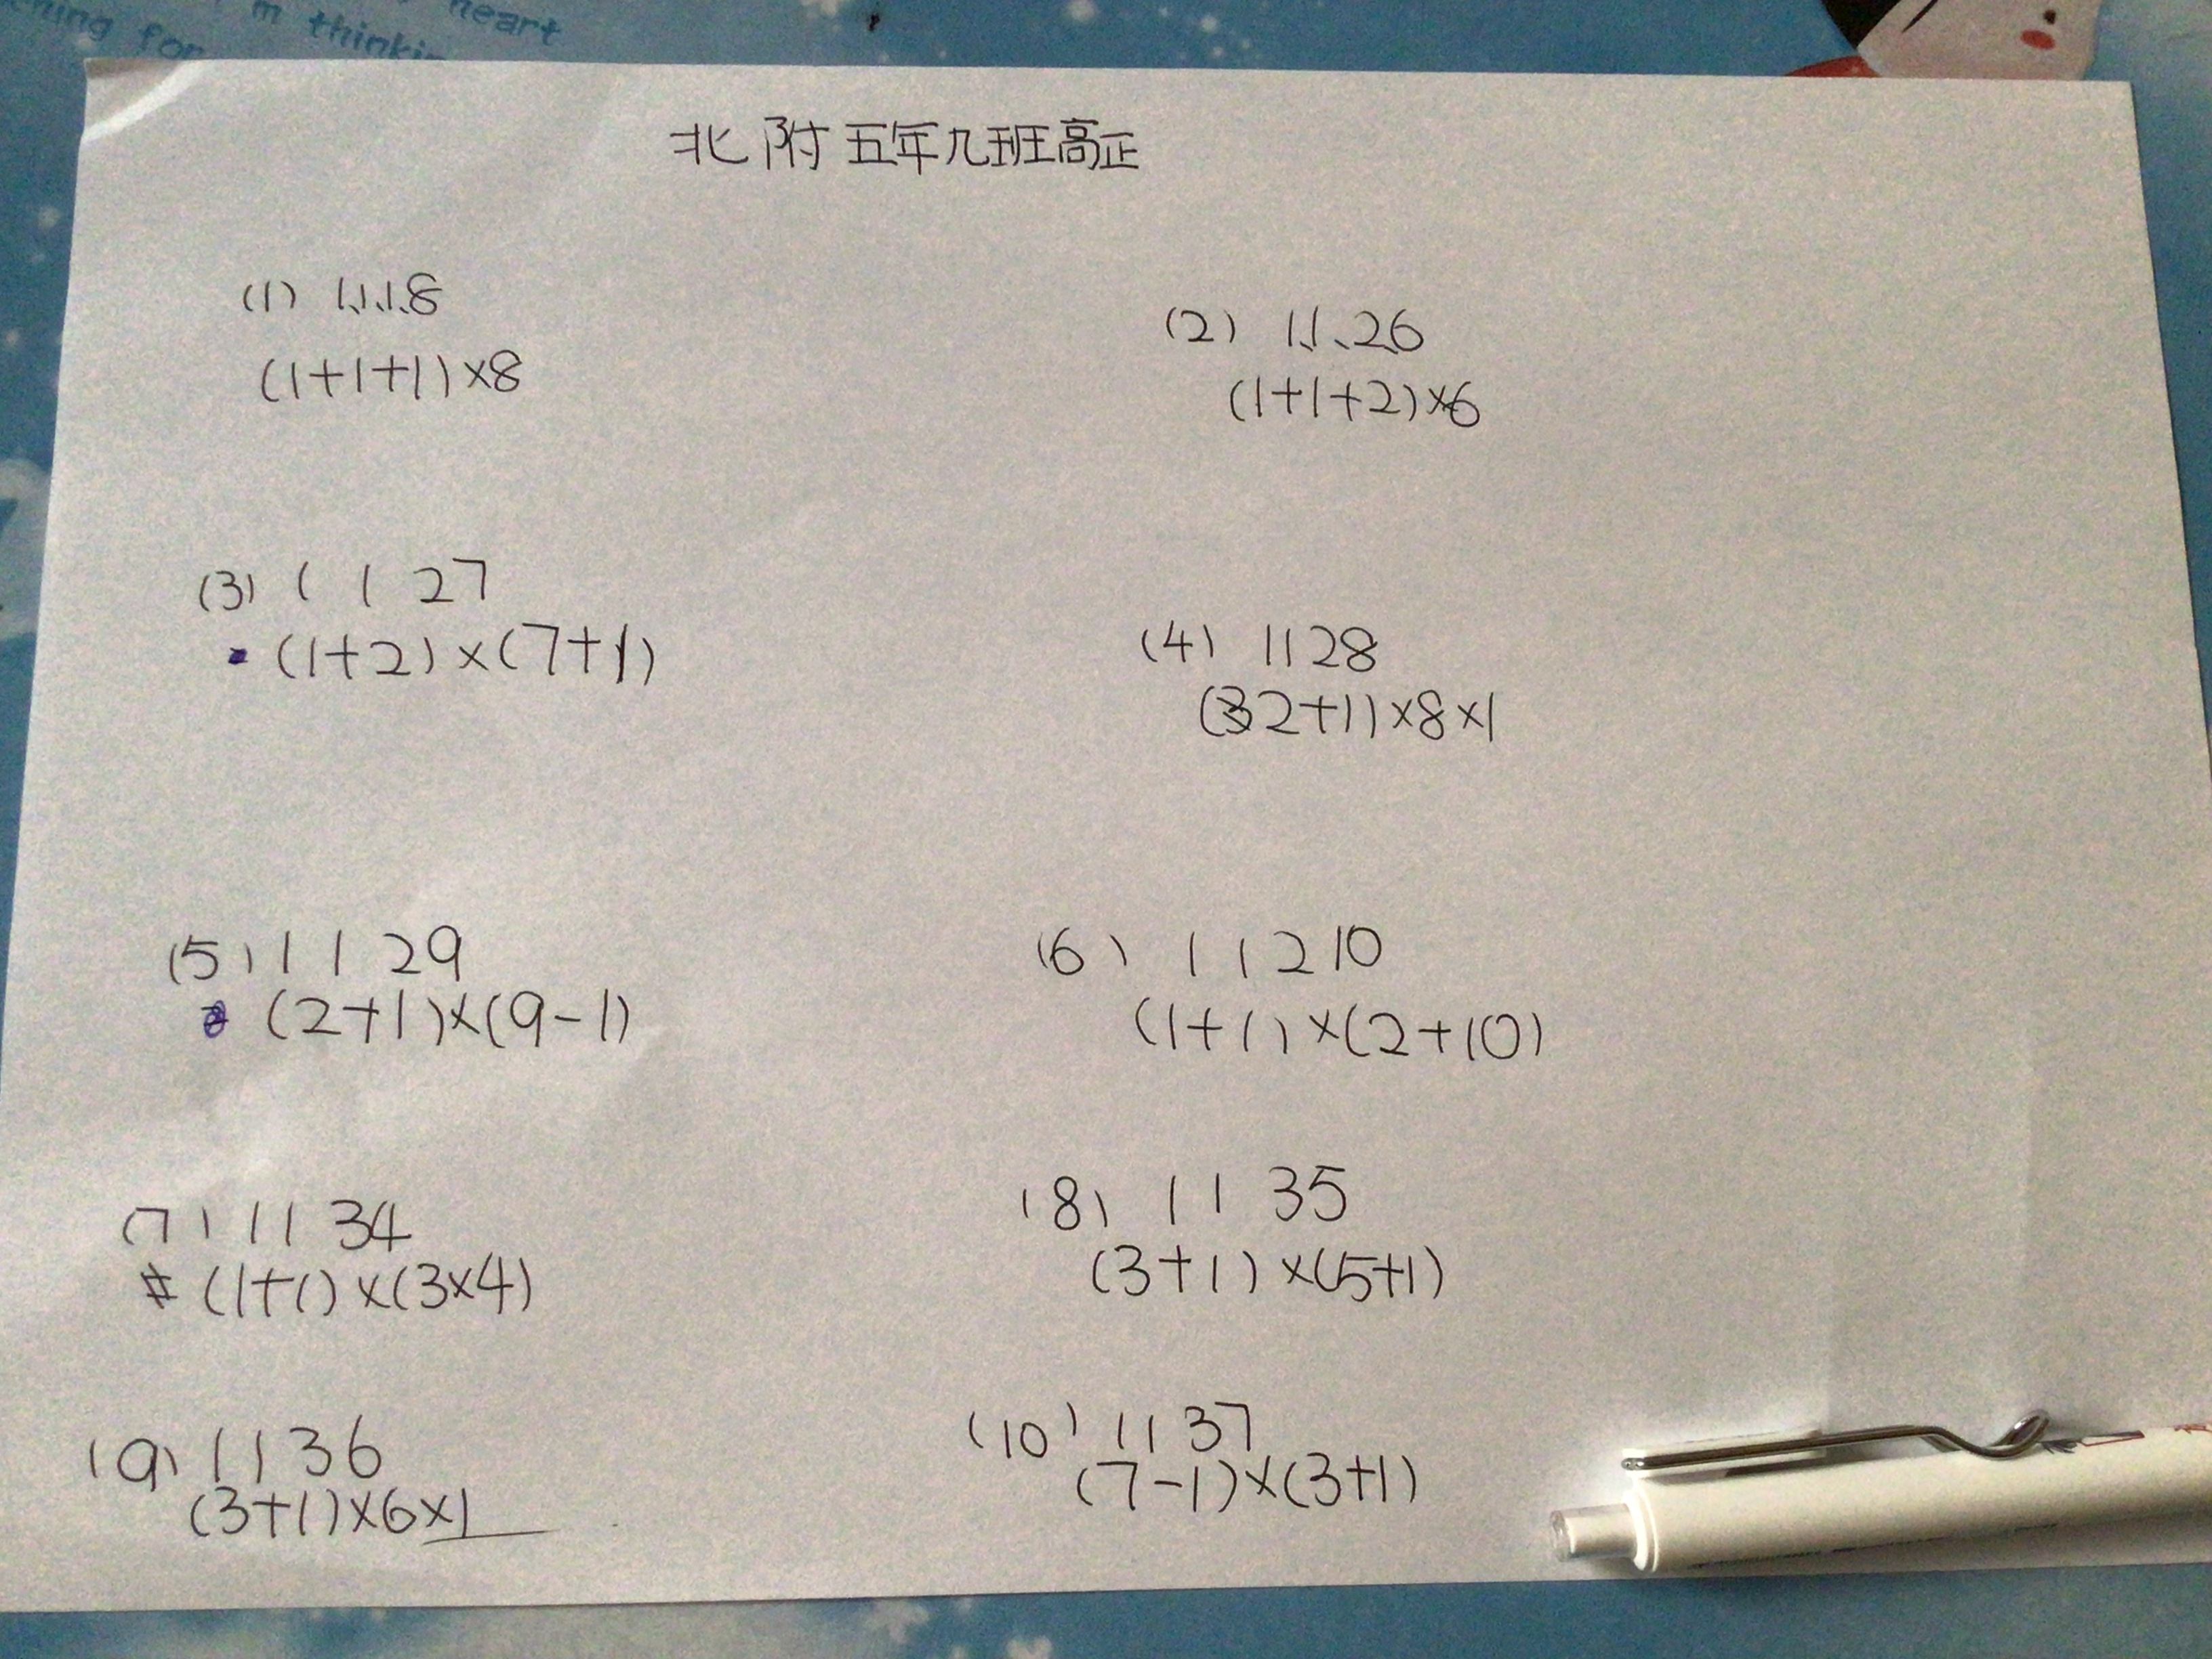 heart
m thinkin
hing for
北附五年九班高正
(1) 1、1、1、8
(1+1+1)×8
(2) 1、1、2、6
(1+1+2)×6
(3) 1 1 2 7
(1+2)×(7+1)
(4) 1 1 2 8
(2+1)×8×1
(5) 1 1 2 9
(2+1)×(9-1)
(6) 1 1 2 10
(1+1)×(2+10)
(7) 1 1 3 4
(1+1)×(3×4)
(8) 1 1 3 5
(3+1)×(5+1)
(9) 1 1 3 6
(3+1)×6×1
(10) 1 1 3 7
(7-1)×(3+1)